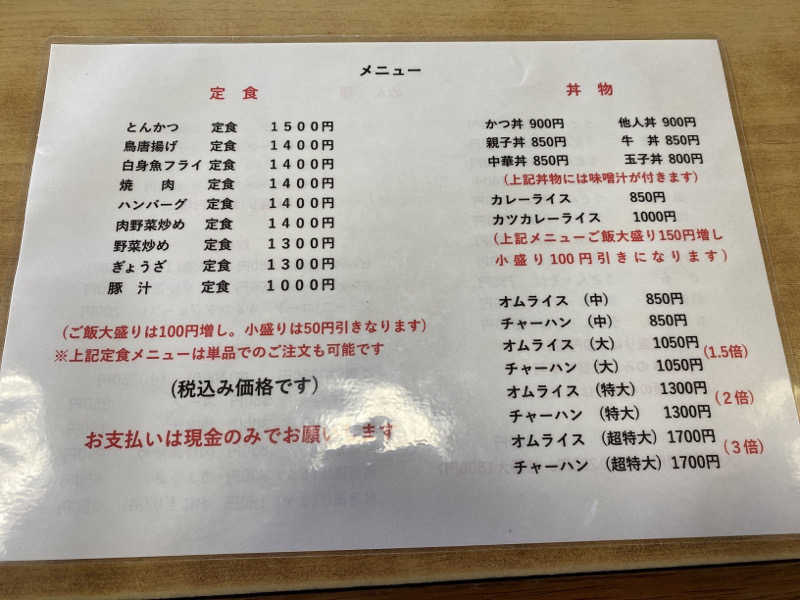 メニュー
定食
とんかつ 定食 1500円
鳥唐揚げ 定食 1400円
白身魚フライ 定食 1400円
焼 肉 定食 1400円
ハンバーグ 定食 1400円
肉野菜炒め 定食 1400円
野菜炒め 定食 1300円
ぎょうざ 定食 1300円
豚 汁 定食 1000円
(ご飯大盛りは100円増し。小盛りは50円引きなります)
※上記定食メニューは単品でのご注文も可能です
(税込み価格です)
お支払いは現金のみでお願いします
丼 物
かつ丼 900円 他人丼 900円
親子丼 850円 牛 丼 850円
中華丼 850円 玉子丼 800円
(上記丼物には味噌汁が付きます)
カレーライス 850円
カツカレーライス 1000円
(上記メニューご飯大盛り150円増し
小盛り100円引きになります)
オムライス (中) 850円
チャーハン (中) 850円
オムライス (大) 1050円
(1.5倍)
チャーハン (大) 1050円
オムライス (特大) 1300円
(2倍)
チャーハン (特大) 1300円
オムライス (超特大) 1700円
(3倍)
チャーハン (超特大) 1700円